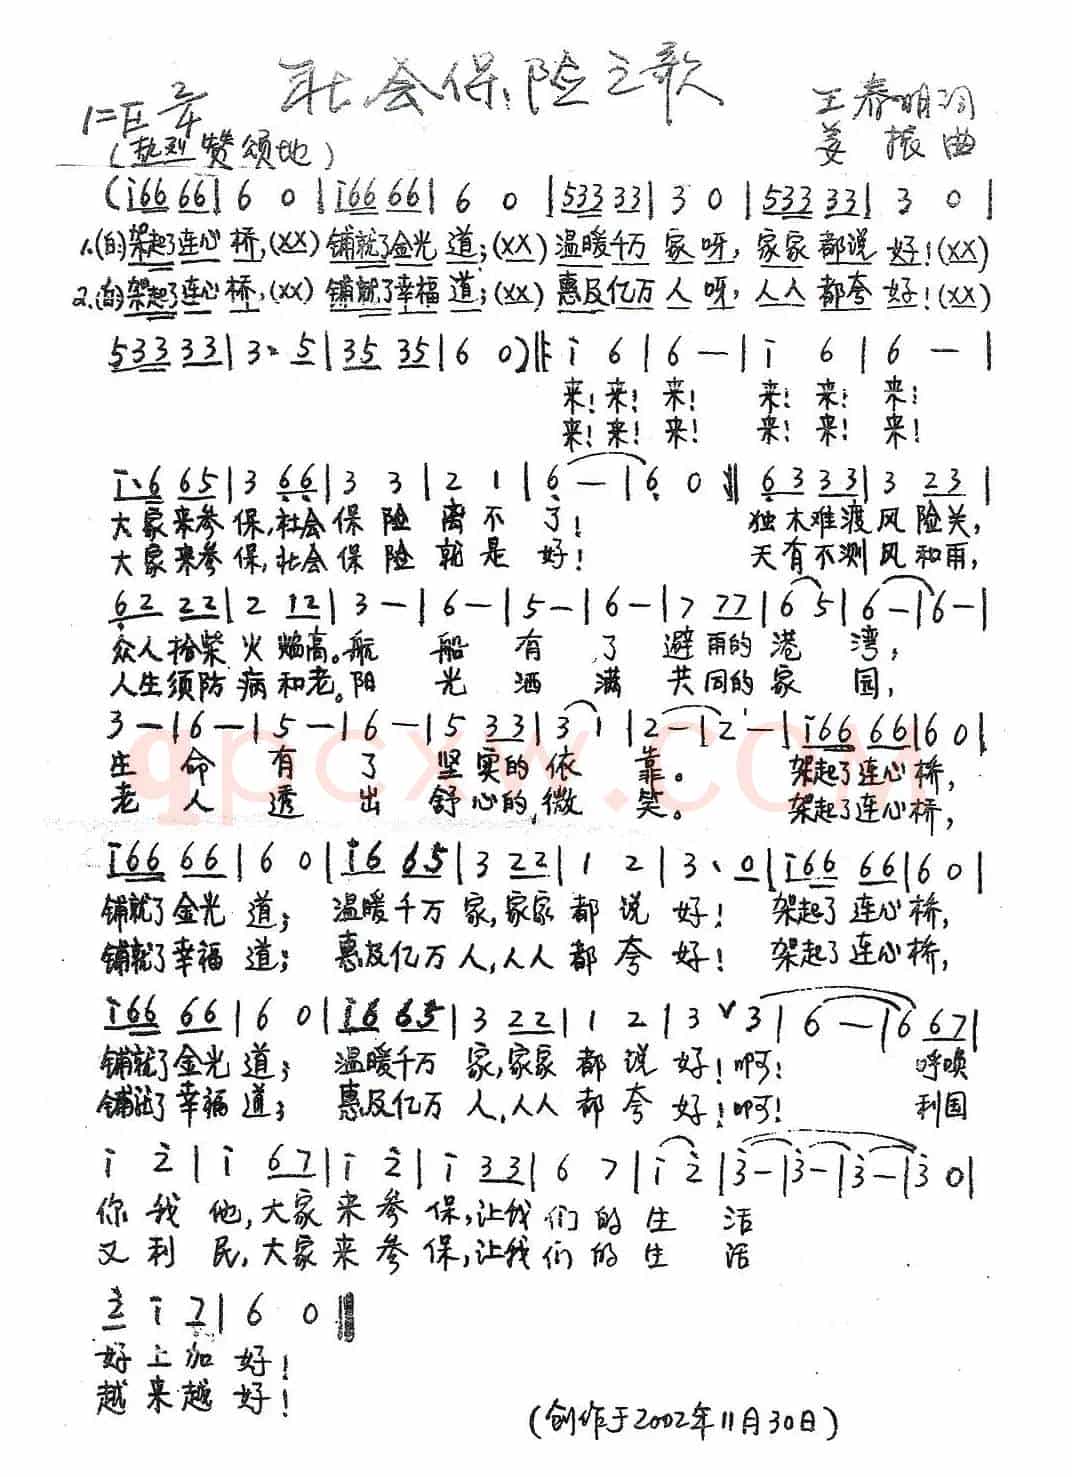 社会保险之歌
1=E 2/4
王春明词
(热烈 赞颂地)
姜 振 曲
(i66 66 | 6 0 | i66 66 | 6 0 | 533 33 | 3 0 | 533 33 | 3 0 |
1.(白)架起了连心桥,(XX)铺就了金光道;(XX)温暖千万家呀,家家都说好!(XX)
2.(白)架起了连心桥,(XX)铺就了幸福道;(XX)惠及亿万人呀,人人都夸好!(XX)
533 33 | 3. 5 | 35 35 | 6 0) ‖: i 6 | 6 — | i 6 | 6 — |
来!来!来! 来!来!来!
来!来!来! 来!来!来!
i. 6 65 | 3 66 | 3 3 | 2 1 | 6 — | 6 0 ‖ 6333 | 3 23 |
大家来参保,社会保险离不了! 独木难渡风险关,
大家来参保,社会保险就是好! 天有不测风和雨,
62 22 | 2 12 | 3 — | 6 — | 5 — | 6 — | 7 77 | 6 5 | 6 — | 6 — |
众人拾柴火焰高。航船有了避雨的港湾,
人生须防病和老。阳光洒满共同的家园,
3 — | 6 — | 5 — | 6 — | 5 33 | 3 1 | 2 — | 2 — | i66 66 | 6 0 |
生命有了坚实的依靠。 架起了连心桥,
老人透出舒心的微笑。 架起了连心桥,
qpcxw.com
i66 66 | 6 0 | i6 65 | 3 22 | 1 2 | 3. 0 | i66 66 | 6 0 |
铺就了金光道; 温暖千万家,家家都说好! 架起了连心桥,
铺就了幸福道; 惠及亿万人,人人都夸好! 架起了连心桥,
i66 66 | 6 0 | i6 65 | 3 22 | 1 2 | 3 ∨ 3 | 6 — | 6 67 |
铺就了金光道; 温暖千万家,家家都说好!啊! 呼唤
铺就了幸福道; 惠及亿万人,人人都夸好!啊! 利国
i 2 | i 67 | i 2 | i 33 | 6 7 | i 2 | 3 — | 3 — | 3 — | 3 0 |
你我他,大家来参保,让我们的生活
又利民,大家来参保,让我们的生活
2 i 7 | 6 0 ‖
好上加好!
越来越好!
(创作于2002年11月30日)